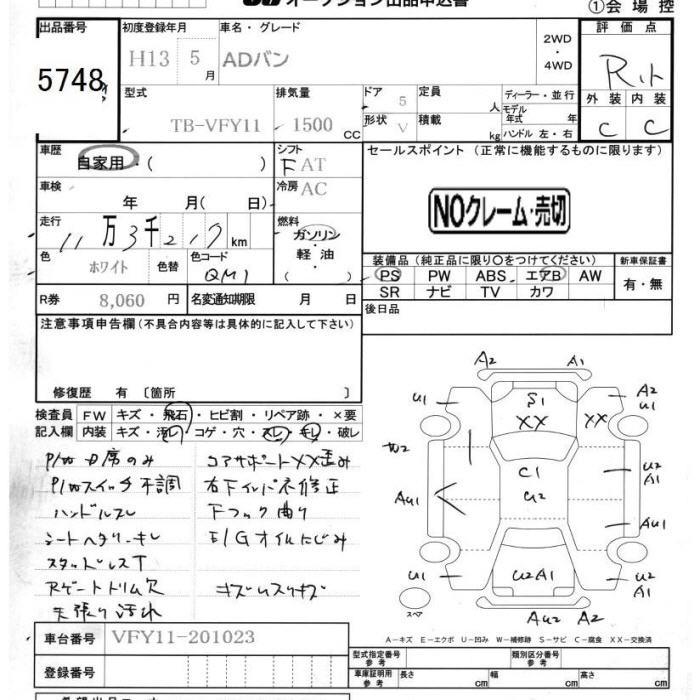 オークション出品申込書
①会場控
出品番号 初度登録年月 車名・グレード 2WD・4WD 評価点
5748 H13 5月 ADバン R
外装 内装
C C
型式 排気量 ドア 定員 ディーラー・並行
TB-VFY11 1500CC 5 人 モデル年式 年
形状 積載 kg ハンドル 左・右
V
車歴 自家用・( ) シフト セールスポイント(正常に機能するものに限ります)
F AT
車検 年 月( 日) 冷房 AC
NOクレーム・売切
走行 11万3千217km 燃料 ガソリン・軽油・( )
色 ホワイト 色替 色コード QM1
装備品(純正品に限り○をつけてください) 新車保証書
PS PW ABS エアB AW 有・無
SR ナビ TV カワ
R券 8,060円 名変通知期限 月 日 後日品
注意事項申告欄(不具合内容等は具体的に記入して下さい)
修復歴 有 〔箇所 〕
検査員記入欄 FW キズ・飛石・ヒビ割・リペア跡・×要
内装 キズ・汚レ・コゲ・穴・スレ・キレ・破レ
P/Wスイッチ不調
ハンドルスレ
シートヘタリ・キレ
スタッドレスT
Rゲートトリム欠
天張り汚れ
コアサポートXX歪み
下フック曲り
E/Gオイルにじみ
キズ
A2 A1
U1 S1 A2 U1
XX XX
W2 C1 U2 A1
AU1 U2 AU1
U1 U2A1 U2 A1
スペア AU2 A2
A-キズ E-エクボ U-凹み W-補修跡 S-サビ C-腐食 XX-交換済
車台番号 VFY11-201023
型式指定番号 参考 類別区分番号 参考
登録番号
車庫証明用 参考 長さ cm 幅 cm 高さ cm